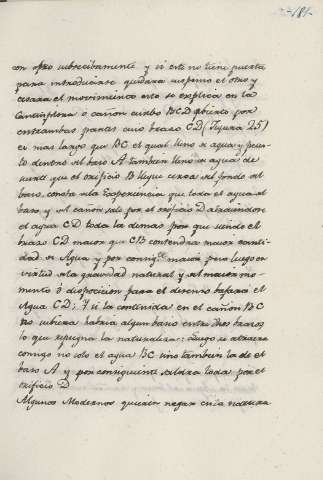 181
para introducirse quedará suspenso el otro y
cesará el movimiento esto se explica en la
Cantimplora ó cañon curbo BCD abierto por
entrambas partes cuio brazo CD (Figura 25)
es mas largo que BC el qual lleno de agua y pues-
to dentro del baso A tambien lleno de agua de
suerte que el orificio B llegue cerca del fondo del
baso, consta de la Experiencia que toda el agua del
baso, y del cañon sale por el orificio D atraiendose
el agua CD toda la demas por que siendo el
brazo CD maior que CB contendrá maior canti-
dad de Agua y por consig.te maior peso luego en
virtud de la gravedad natural y del maior mo-
mento ó disposicion para el descenso bajará el
Agua CD; Y si la contenida en el cañon BC
no subiera habria algun bano entre dros brazos,
lo que repugna la naturaleza: Luego se atraerá
consigo no solo el agua BC sino tambien la de el
baso A y por consiguiente saldrá toda por el
orificio D
Algunos Modernos quieren negar en la natura